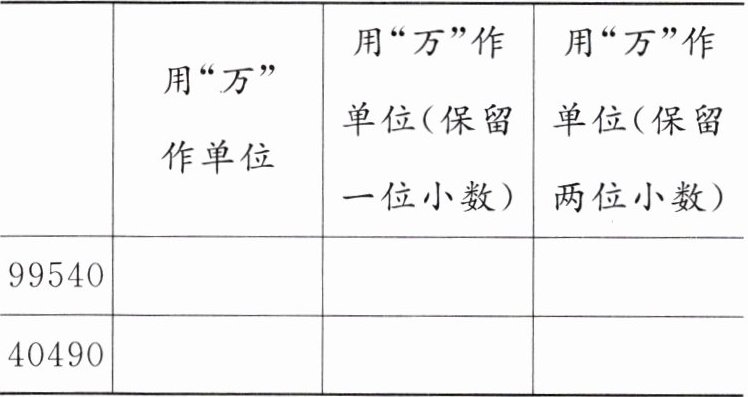 用“万”
作单位
用“万”作
单位(保留
一位小数)
用“万”作
单位(保留
两位小数)
99540
40490